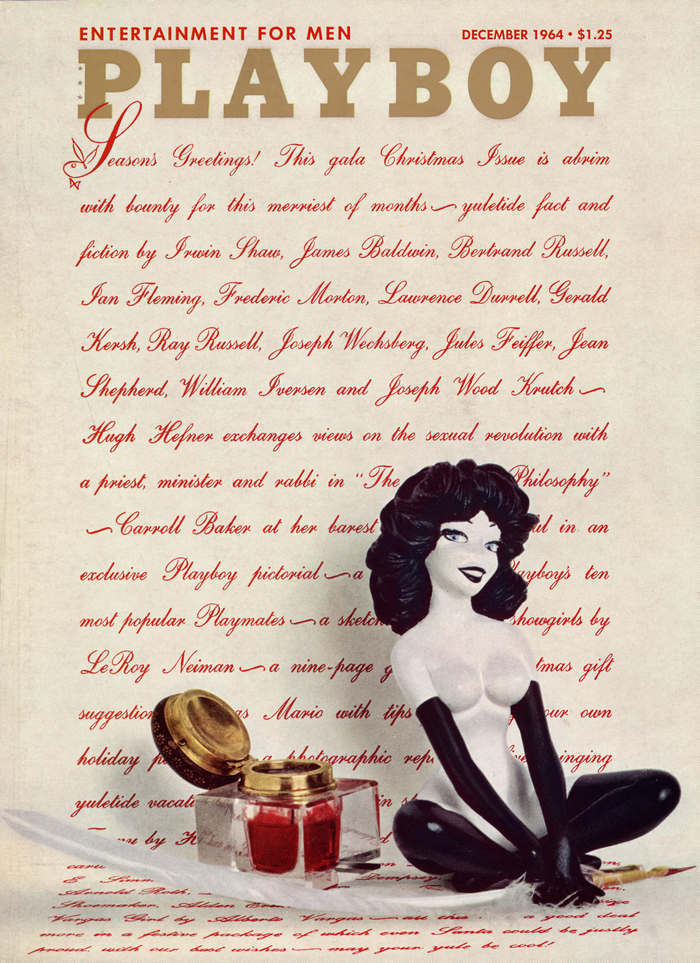 ENTERTAINMENT FOR MEN
DECEMBER 1964 • $1.25
PLAYBOY
Season's Greetings! This gala Christmas Issue is abrim
with bounty for this merriest of months — yuletide fact and
fiction by Irwin Shaw, James Baldwin, Bertrand Russell,
Ian Fleming, Frederic Morton, Lawrence Durrell, Gerald
Kersh, Ray Russell, Joseph Wechsberg, Jules Feiffer, Jean
Shepherd, William Iversen and Joseph Wood Krutch —
Hugh Hefner exchanges views on the sexual revolution with
a priest, minister and rabbi in "The Philosophy"
— Carroll Baker at her barest in an
exclusive Playboy pictorial — a ten
most popular Playmates — a showgirls by
LeRoy Neiman — a nine-page gift
as Mario with tips own
holiday a photographic
yuletide in
by
E.
Arnold Roth,
Shoemaker, Alden
Vargas Girl by Alberto Vargas — all this a good deal
more in a festive package of which even Santa could be justly
proud, with our best wishes — may your yule be cool!